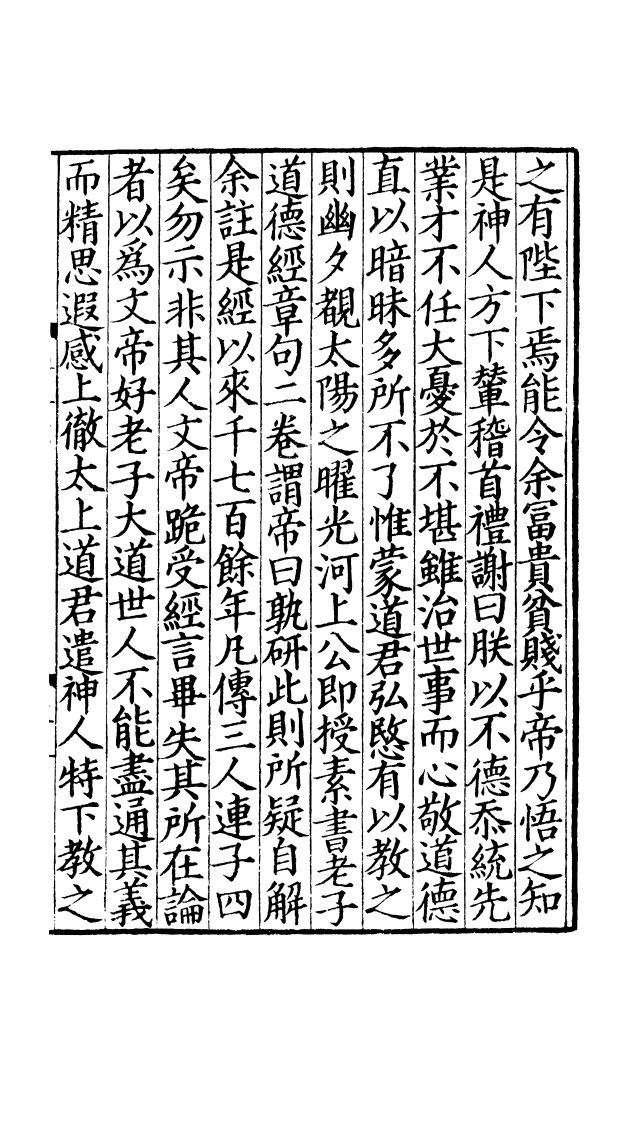 之有陛下焉能令余冨貴貧賤乎帝乃悟之知
是神人方下輦稽首禮謝曰朕以不德忝統先
業才不任大憂於不堪雖治世事而心敬道德
直以暗昧多所不了惟蒙道君弘愍有以教之
則幽夕覩太陽之曜光河上公即授素書老子
道德經章句二卷謂帝曰孰研此則所疑自解
余註是經以來千七百餘年凡傳三人連子四
矣勿示非其人文帝跪受經言畢失其所在論
者以爲文帝好老子大道世人不能盡通其義
而精思遐感上徹太上道君遣神人特下教之